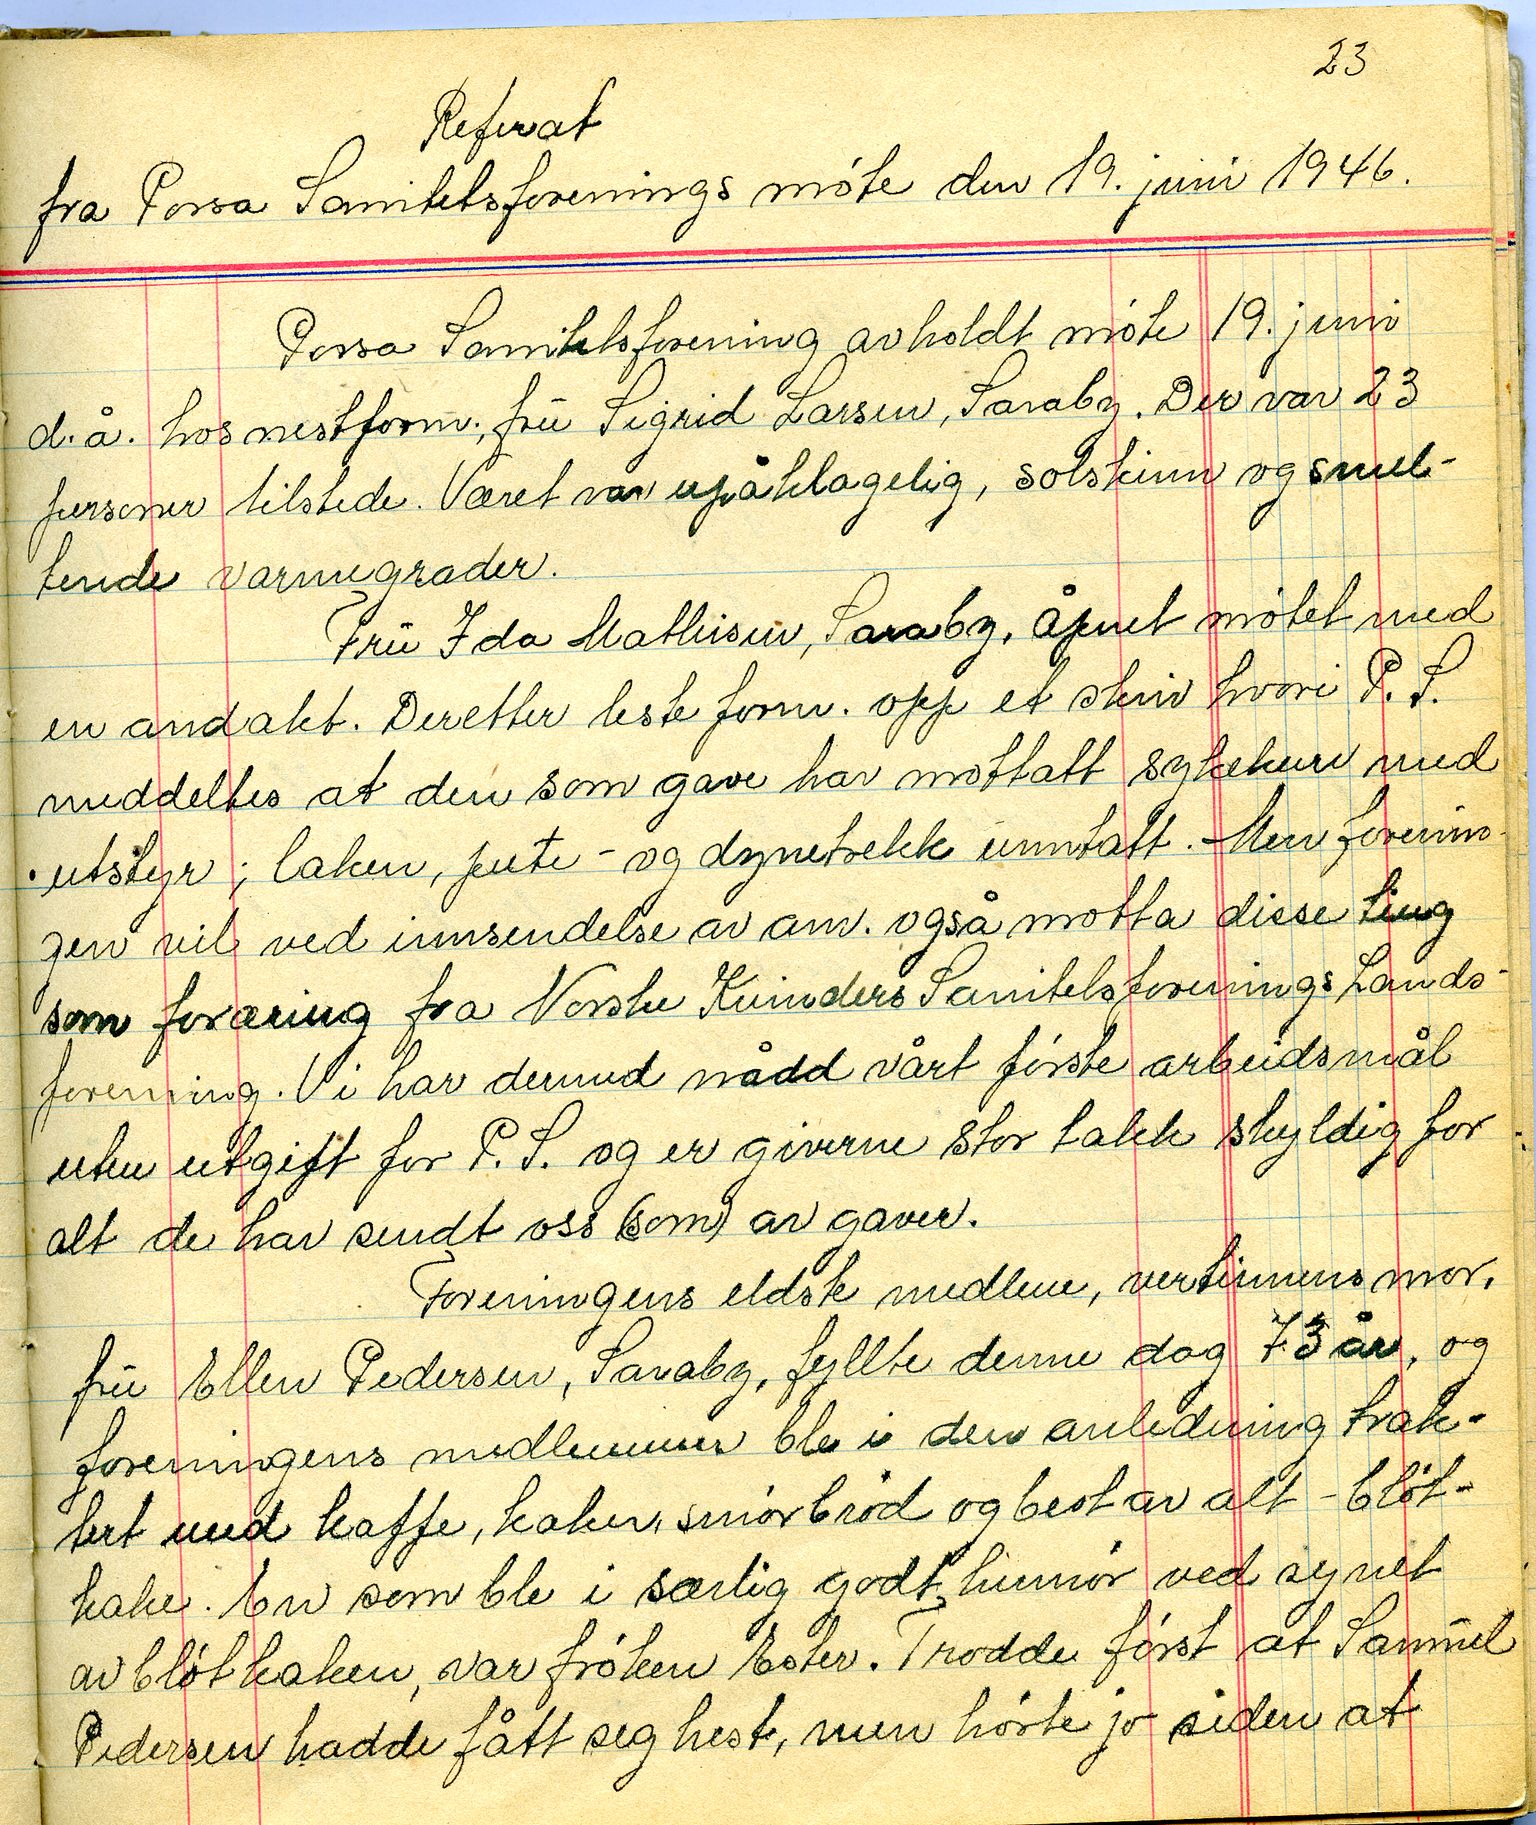 23
Referat
fra Porsa Sanitetsforenings møte den 19. juni 1946.
Porsa Sanitetsforening avholdt møte 19. juni
d.å. hos nestform., frü Sigrid Larsen, Saraby. Der var 23
personer tilstede. Været var upåklagelig, solskinn og smel-
tende varmegrader.
Frü Ida Mathisen, Saraby, åpnet møtet med
en andakt. Deretter leste form. opp et skriv hvori P. S.
meddeltes at den som gave har mottatt sykekurv med
utstyr; laken, pute- og dynetrekk unntatt. Men forenin-
gen vil ved innsendelse av anv. også motta disse ting
som foræring fra Norske Kvinders Sanitetsforenings Lands-
forening. Vi har dermed nådd vårt første arbeidsmål
uten utgift for P. S. og er giverne stor takk skyldig for
alt de har sendt oss (som) av gaver.
Foreningens eldste medlem, vertinnens mor,
frü Ellen Pedersen, Saraby, fyllte denne dag 73 år, og
foreningens medlemmer ble i den anledning trak-
tert med kaffe, kaker, smørbrød og best av alt - bløt-
kake. En som ble i særlig godt humør ved synet
av bløtkaken, var frøken Ester. Trodde først at Samüel
Pedersen hadde fått seg hest, men hørte jo siden at